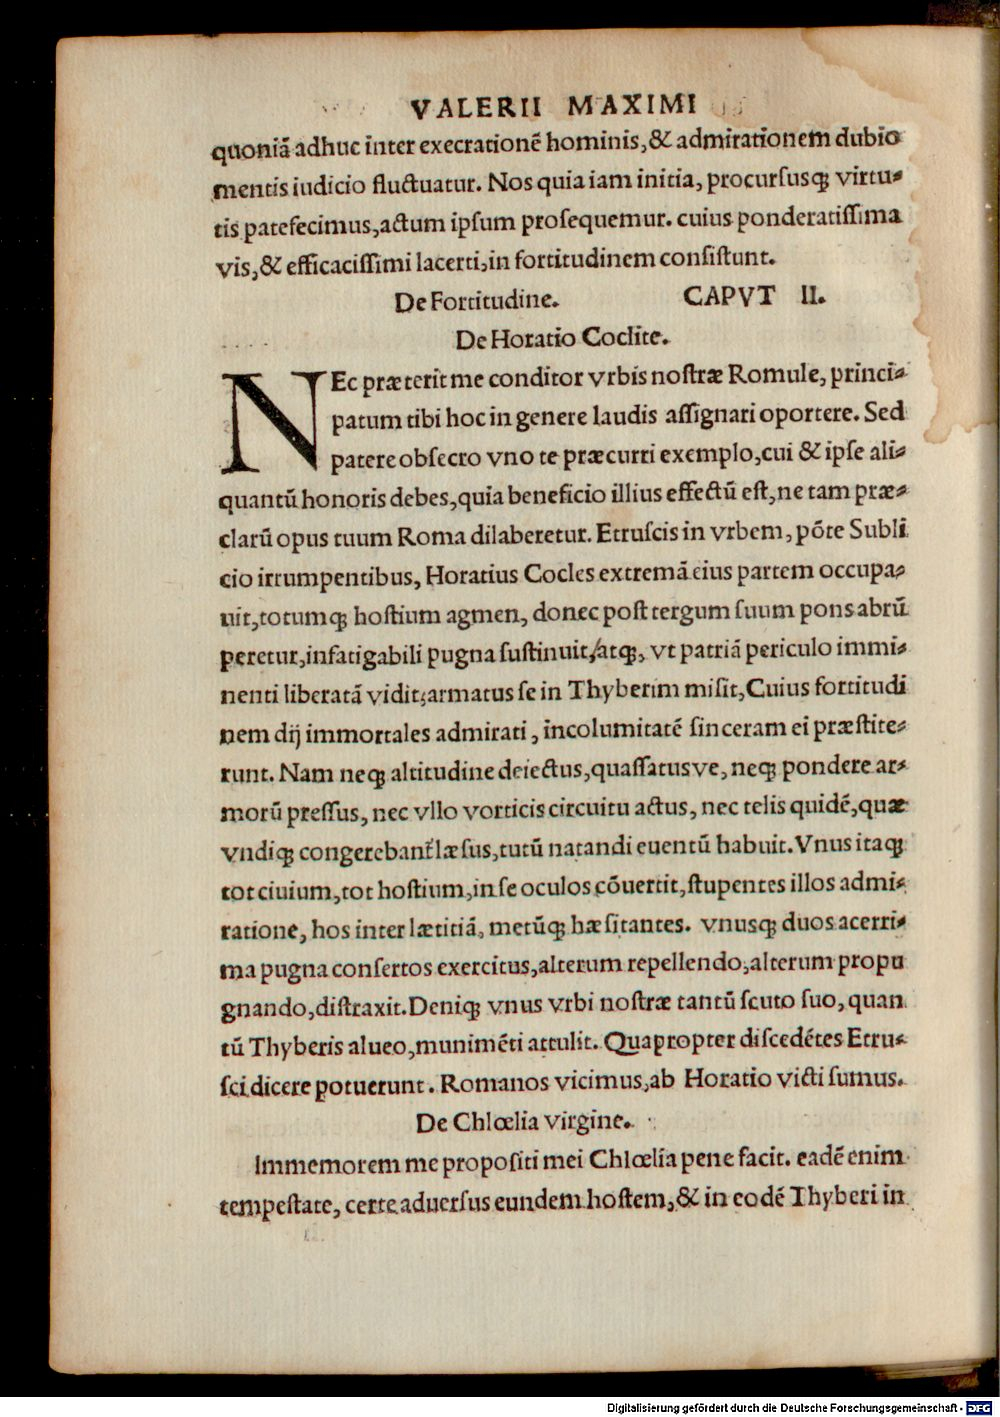 VALERII MAXIMI
quoniã adhuc inter execrationẽ hominis,& admirationem dubio
mentis iudicio fluctuatur. Nos quia iam initia, procursusqꝫ virtu⸗
tis patefecimus,actum ipsum prosequemur. cuius ponderatissima
vis,& efficacissimi lacerti,in fortitudinem consistunt.
De Fortitudine. CAPVT II.
De Horatio Coclite.
NEc præterit me conditor vrbis nostræ Romule, princi⸗
patum tibi hoc in genere laudis assignari oportere. Sed
patere obsecro vno te præcurri exemplo,cui & ipse ali⸗
quantũ honoris debes,quia beneficio illius effectũ est, ne tam præ⸗
clarũ opus tuum Roma dilaberetur. Etruscis in vrbem, põte Subli
cio irrumpentibus, Horatius Cocles extremã eius partem occupa⸗
uit,totumqꝫ hostium agmen, donec post tergum suum pons abrũ
peretur,infatigabili pugna sustinuit,atqꝫ, vt patriã periculo immi⸗
nenti liberatã vidit,armatus se in Thyberim misit,Cuius fortitudi
nem dij immortales admirati, incolumitatẽ sinceram ei præstite⸗
runt. Nam neqꝫ altitudine deiectus,quassatusve, neqꝫ pondere ar⸗
morũ pressus, nec vllo vorticis circuitu actus, nec telis quidẽ,quæ
vndiqꝫ congerebant læsus,tutũ natandi euentũ habuit. Vnus itaqꝫ
tot ciuium,tot hostium,in se oculos cõuertit,stupentes illos admi⸗
ratione, hos inter lætitiã, metũqꝫ hæsitantes. vnusqꝫ duos acerri⸗
ma pugna consertos exercitus,alterum repellendo,alterum propu
gnando,distraxit.Deniqꝫ vnus vrbi nostræ tantũ scuto suo, quan
tũ Thyberis alueo,munimẽti attulit. Quapropter discedẽtes Etru⸗
sci dicere potuerunt. Romanos vicimus,ab Horatio victi sumus.
De Chlœlia virgine.
Immemorem me propositi mei Chlœlia pene facit. eadẽ enim
tempestate, certe aduersus eundem hostem,& in eodẽ Thyberi in
Digitalisierung gefördert durch die Deutsche Forschungsgemeinschaft - DFG